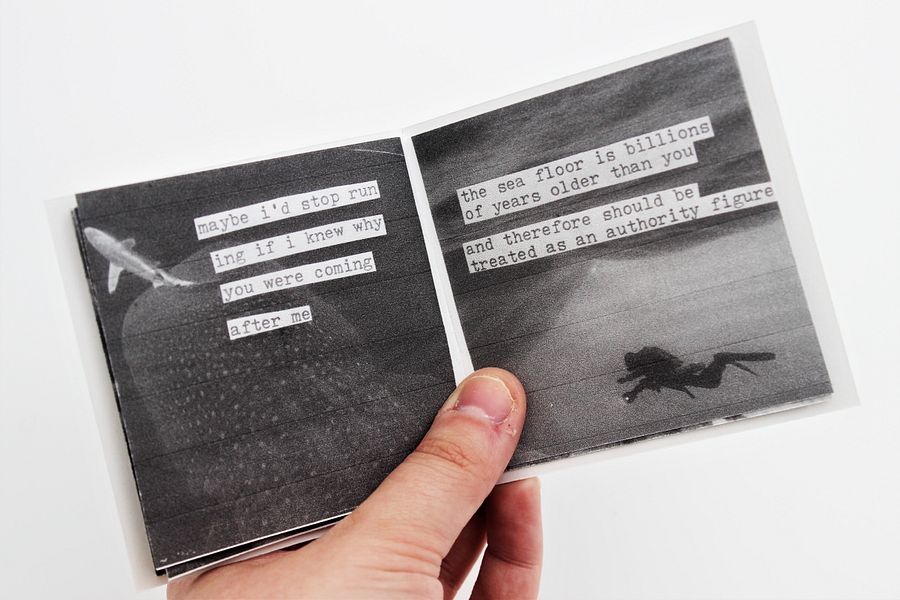 maybe i'd stop run
ing if i knew why
you were coming
after me
the sea floor is billions
of years older than you
and therefore should be
treated as an authority figure